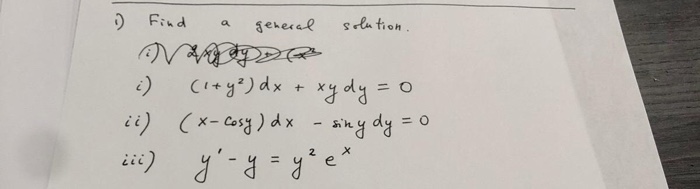 1) Find a general solution.
i) (1+y²)dx + xy dy = 0
ii) (x-cosy)dx - siny dy = 0
iii) y' - y = y² eˣ